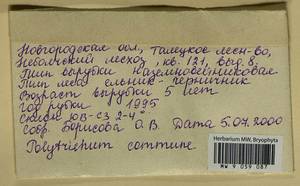 Новгородская обл, Тамуское лесн-во,
Неболчский лесхоз, кв. 121, выд. 8.
Тип вырубки наземновейниковая
Тип леса ельник-черничник
Возраст вырубки 5 лет
Год рубки 1995
Склон ЮВ-СЗ 2-4°
Собр. Борисова О.В. Дата 5.07.2000
Polytrichum commune
Herbarium MW, Bryophyta
MW 9 059 087